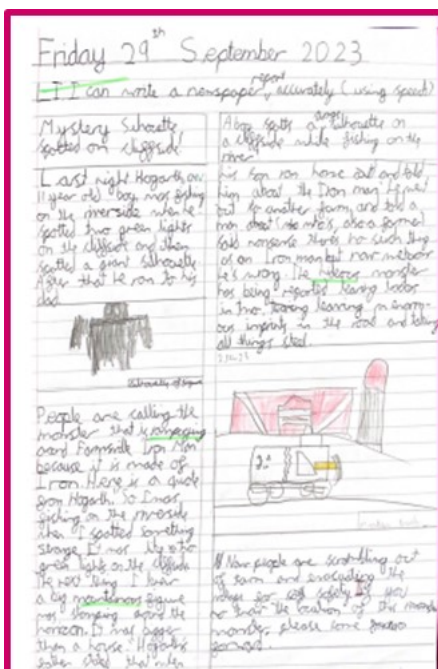 Friday 29th September 2023
LI I can write a newspaper report, accurately (using speed)
Mystery Silhouette
spotted on cliffside
Last night Hogarth an
11 year old boy was fishing
on the riverside when he
spotted two green lights
on the cliffside and then
spotted a giant silhouette.
After that he ran to his
dad.
Silhouette of figure
People are calling the
monster that is rampaging
around Farmsville Iron Man
because it is made of
Iron. Here is a quote
from Hogarth. So I was
fishing on the riverside
when I spotted something
strange. It was like two
green lights on the cliffside
the next thing I knew
a big mountainous figure
was stomping across the
horizon. It was bigger
than a house. Hogarth's
father stated that when
A boy spotts a large silhouette on
a cliffside while fishing on the
river
his son ran home and told
him about the Iron man. He went
out to another farm, and told a
man about this also a farmer
said nonsense there's no such thing
as an Iron man but
he's wrong. The hideous monster
has being reported
in two. leaving
imprints in the road and taking
all things steel.
Now people are scrambling out
of town and evacuating the
village for safety. If you
know the location of this
monster, please come
forward.